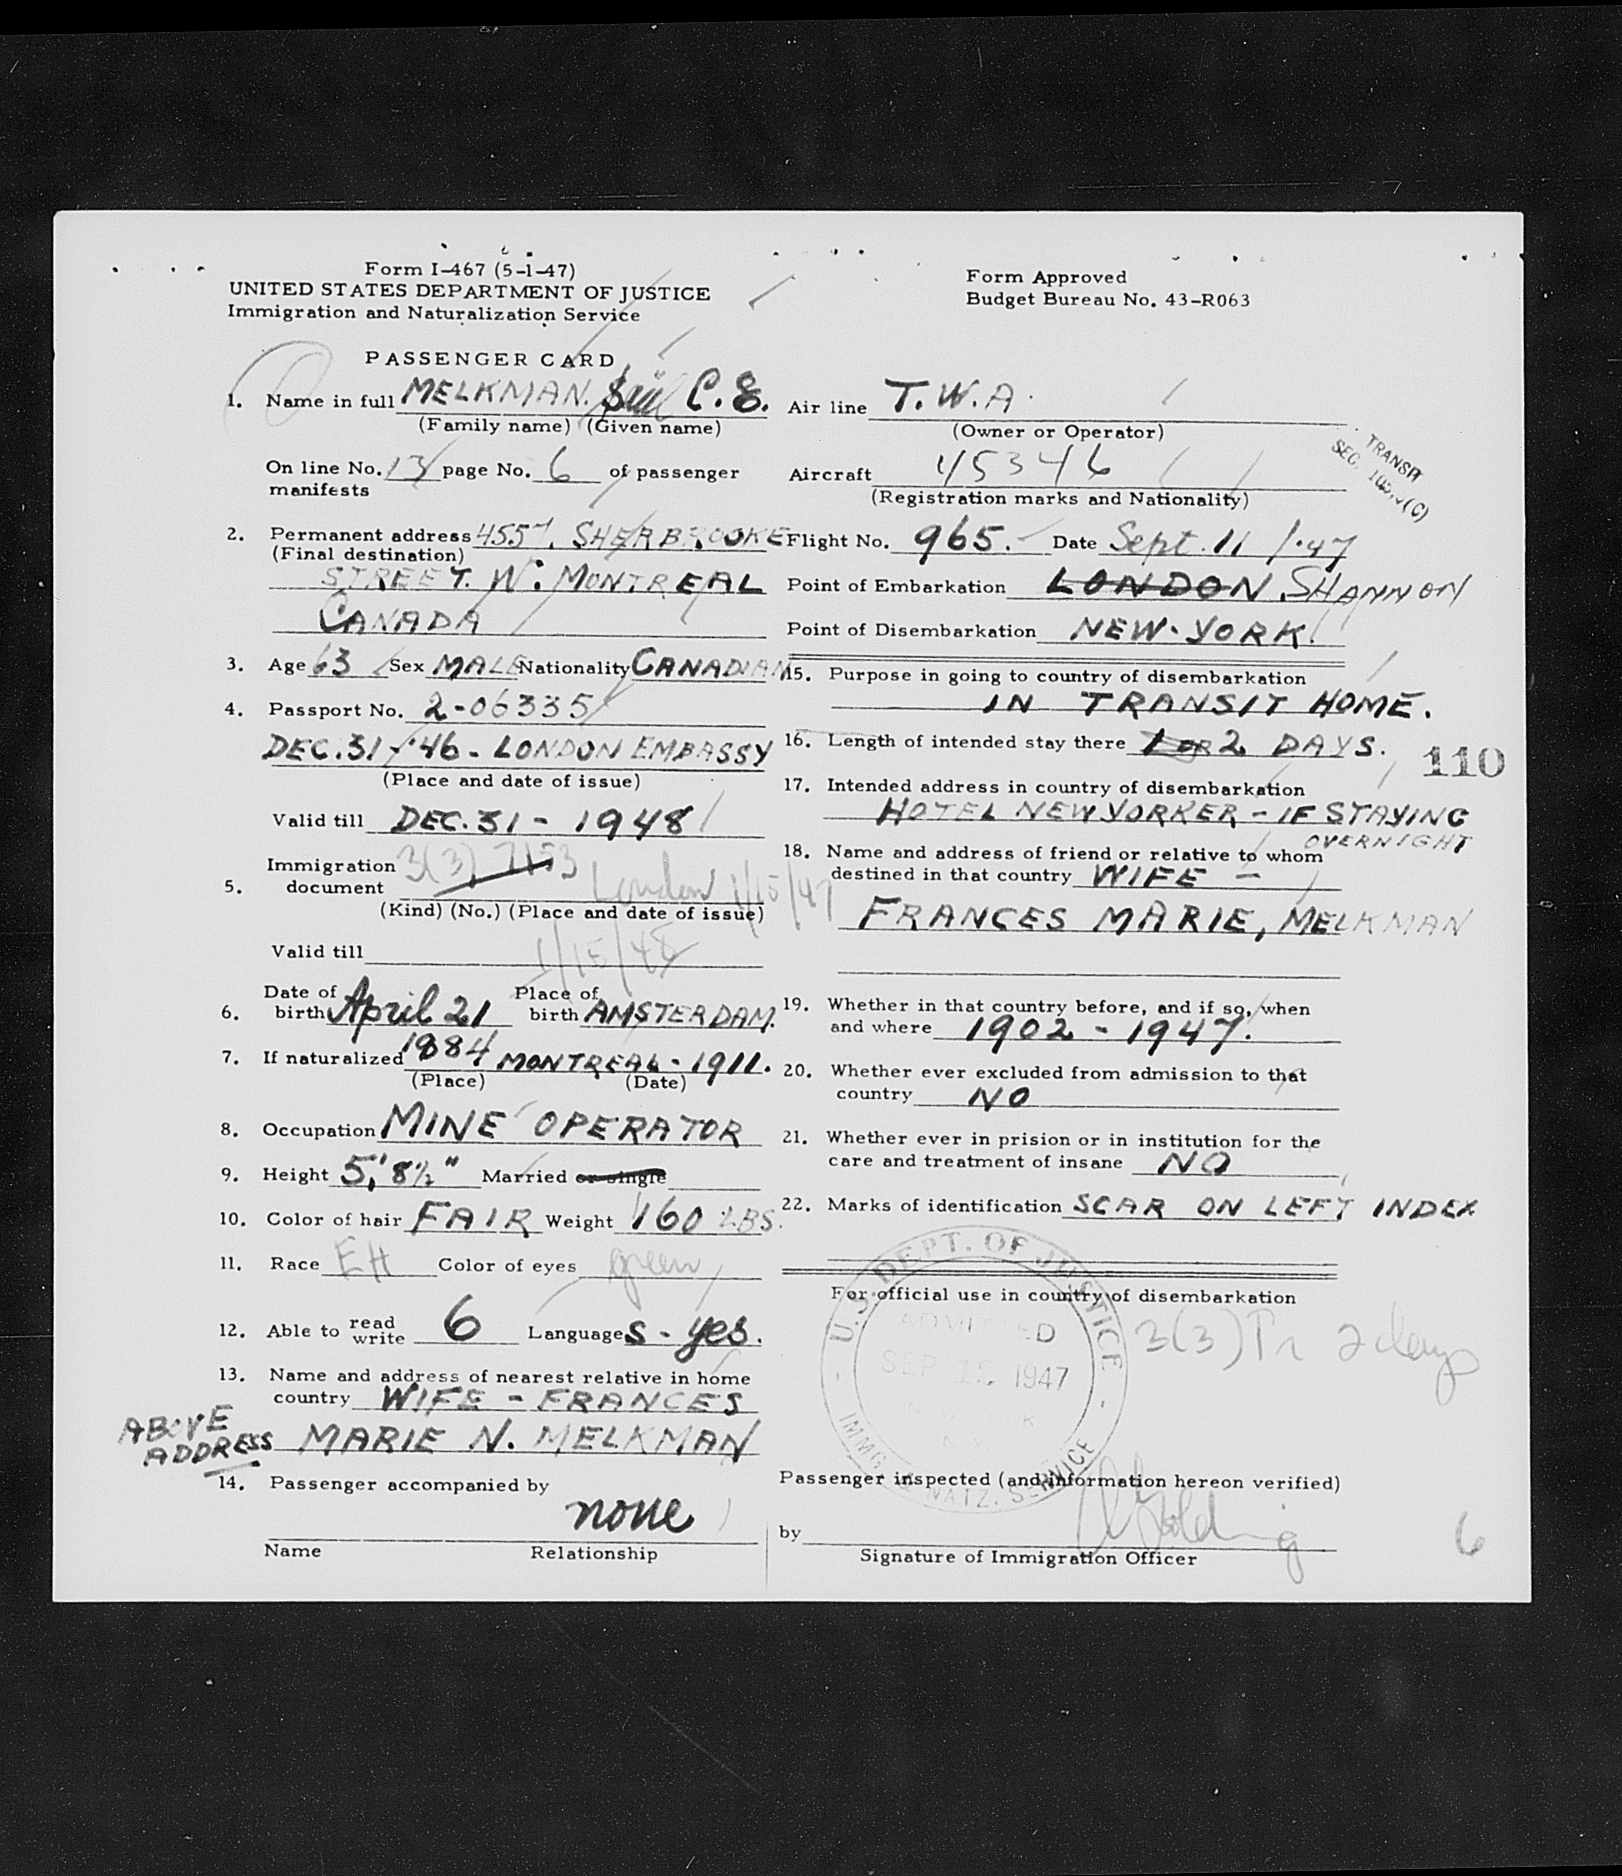 Form I-467 (5-1-47)
UNITED STATES DEPARTMENT OF JUSTICE
Immigration and Naturalization Service
Form Approved
Budget Bureau No. 43-R063
PASSENGER CARD
1. Name in full MELKMAN. C. E.
(Family name) (Given name)
On line No. 13 page No. 6 of passenger
manifests
2. Permanent address 4557. SHERBROOKE
(Final destination)
STREET. W. MONTREAL
CANADA
3. Age 63 Sex MALE Nationality CANADIAN
4. Passport No. 2-06335
DEC. 31 - '46 - LONDON EMBASSY
(Place and date of issue)
Valid till DEC. 31 - 1948
Immigration 3(3) 7153
5. document London 1/15/47
(Kind) (No.) (Place and date of issue)
Valid till 1/15/48
Date of Place of
6. birth April 21 birth AMSTERDAM.
1884
7. If naturalized MONTREAL - 1911.
(Place) (Date)
8. Occupation MINE OPERATOR
9. Height 5' 8½" Married or single
10. Color of hair FAIR Weight 160 LBS.
11. Race EH Color of eyes green
12. Able to read write 6 Languages - yes.
13. Name and address of nearest relative in home
country WIFE - FRANCES
ABOVE ADDRESS MARIE N. MELKMAN
14. Passenger accompanied by
none
Name Relationship
Air line T.W.A.
(Owner or Operator)
Aircraft 45346
(Registration marks and Nationality)
TRANSIT
SEC. (C)
Flight No. 965. - Date Sept. 11 '47
Point of Embarkation LONDON SHANNON
Point of Disembarkation NEW-YORK.
15. Purpose in going to country of disembarkation
IN TRANSIT HOME.
16. Length of intended stay there 1 OR 2 DAYS.
110
17. Intended address in country of disembarkation
HOTEL NEW YORKER - IF STAYING
OVERNIGHT
18. Name and address of friend or relative to whom
destined in that country WIFE -
FRANCES MARIE, MELKMAN
19. Whether in that country before, and if so, when
and where 1902 - 1947.
20. Whether ever excluded from admission to that
country NO
21. Whether ever in prision or in institution for the
care and treatment of insane NO
22. Marks of identification SCAR ON LEFT INDEX
For official use in country of disembarkation
U.S. DEPT. OF JUSTICE
ADMITTED
SEP 1947
IMMG. & NATZ. SERVICE
3(3) Tr 2 days
Passenger inspected (and information hereon verified)
by Golding
Signature of Immigration Officer
6